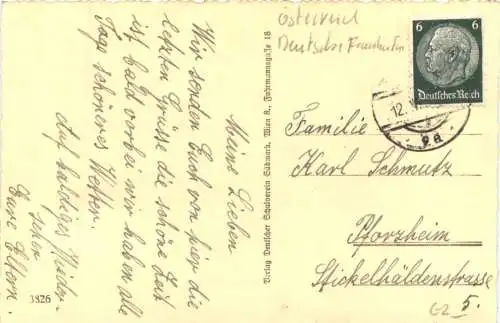 Meine Lieben
Wir senden Euch von hier die
letzten Grüsse die schöne Zeit
ist bald vorbei wir haben alle
Tage schöneres Wetter.
Auf baldiges Wieder-
sehen
Eure Eltern
3826
Verlag Deutscher Schulverein Südmark, Wien 8., Fuhrmannsgasse 18
Österreich
Deutsches
6 6
Deutsches Reich
12.
9a
Familie
Karl Schmutz
Pforzheim
Stickelhäldenstrasse
5.
G2